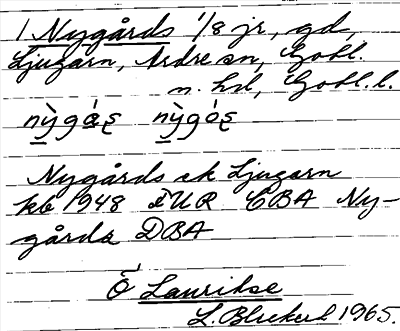 1 Nygårds 1/8 jr, gd,
Ljugarn, Ardre sn, Gotl.
n. hd, Gotl. l.
nỳgás nỳgós
Nygårds ek Ljugarn
kb 1948 EUR CBA Ny-
gårda DBA
Ö Laurikse
L. Bleckert 1965.